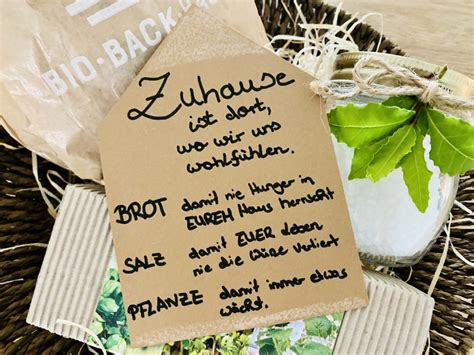 BIO-BACK
Zuhause
ist dort,
wo wir uns
wohlfühlen.
BROT damit nie Hunger in
EUREM Haus herrscht
SALZ damit EUER Leben
nie die Würze verliert
PFLANZE damit immer etwas
wächst.